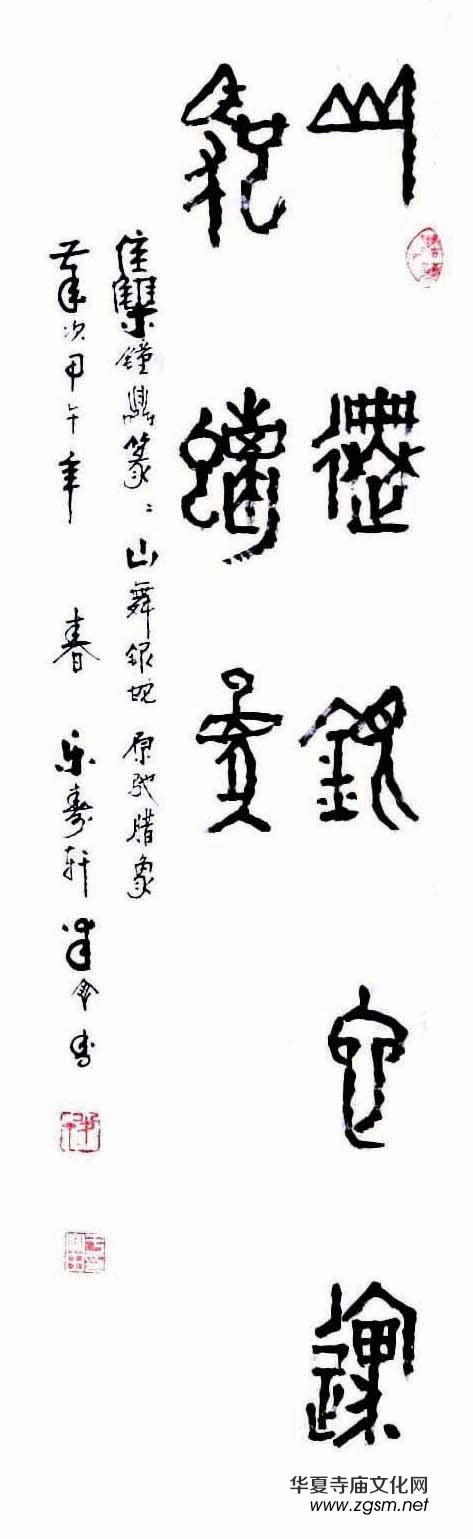 山舞銀它邍
馳蠟象
雧鐘鼎篆：山舞银蛇 原驰腊象
岁次甲午年 春 乐寿轩
华夏寺庙文化网
www.zgsm.net